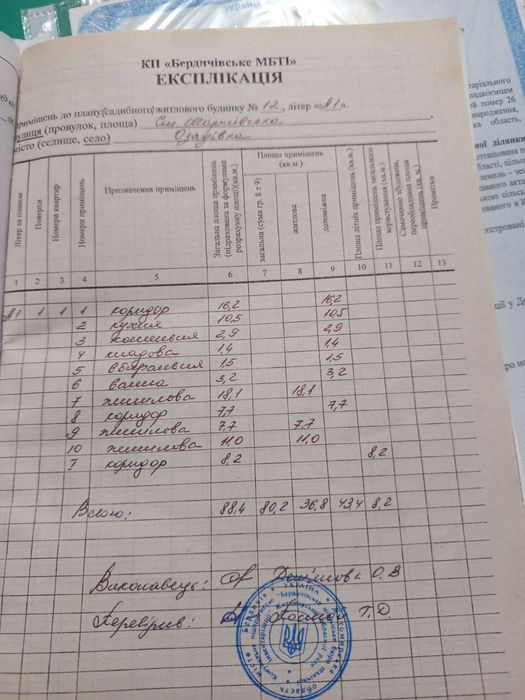 УКРАЇНА
КП «Бердичівське МБТІ»
ЕКСПЛІКАЦІЯ
приміщень до плану(садибного)житлового будинку № 12, літер «А1».
вулиця (провулок, площа)
місто (селище, село) Озадівка
Літер за планом
Поверхи
Номери квартир
Номери приміщень
Призначення приміщень
Загальна площа приміщень (підрахована за формулами розрахунку площ)(кв.м.)
Площа приміщень (кв.м.)
загальна (сума гр. 8 т 9)
житлова
допоміжна
Площа літніх приміщень (кв.м.)
Площа приміщень загального користування (кв.м.)
Самочинно збудована, переобладнана площа приміщень (кв. м.)
Примітки
1 2 3 4 5 6 7 8 9 10 11 12 13
А1 1 1 1 коридор 16,2 16,2
2 кухня 10,5 10,5
3 2,9 2,9
4 кладова 1,4 1,4
5 вбиральня 1,5 1,5
6 ванна 3,2 3,2
7 житлова 18,1 18,1
8 коридор 7,7 7,7
9 житлова 7,7 7,7
10 житлова 11,0 11,0
I коридор 8,2 8,2
Всього: 88,4 80,2 36,8 43,4 8,2
Виконавець: О. В
Перевірив: Т. О.